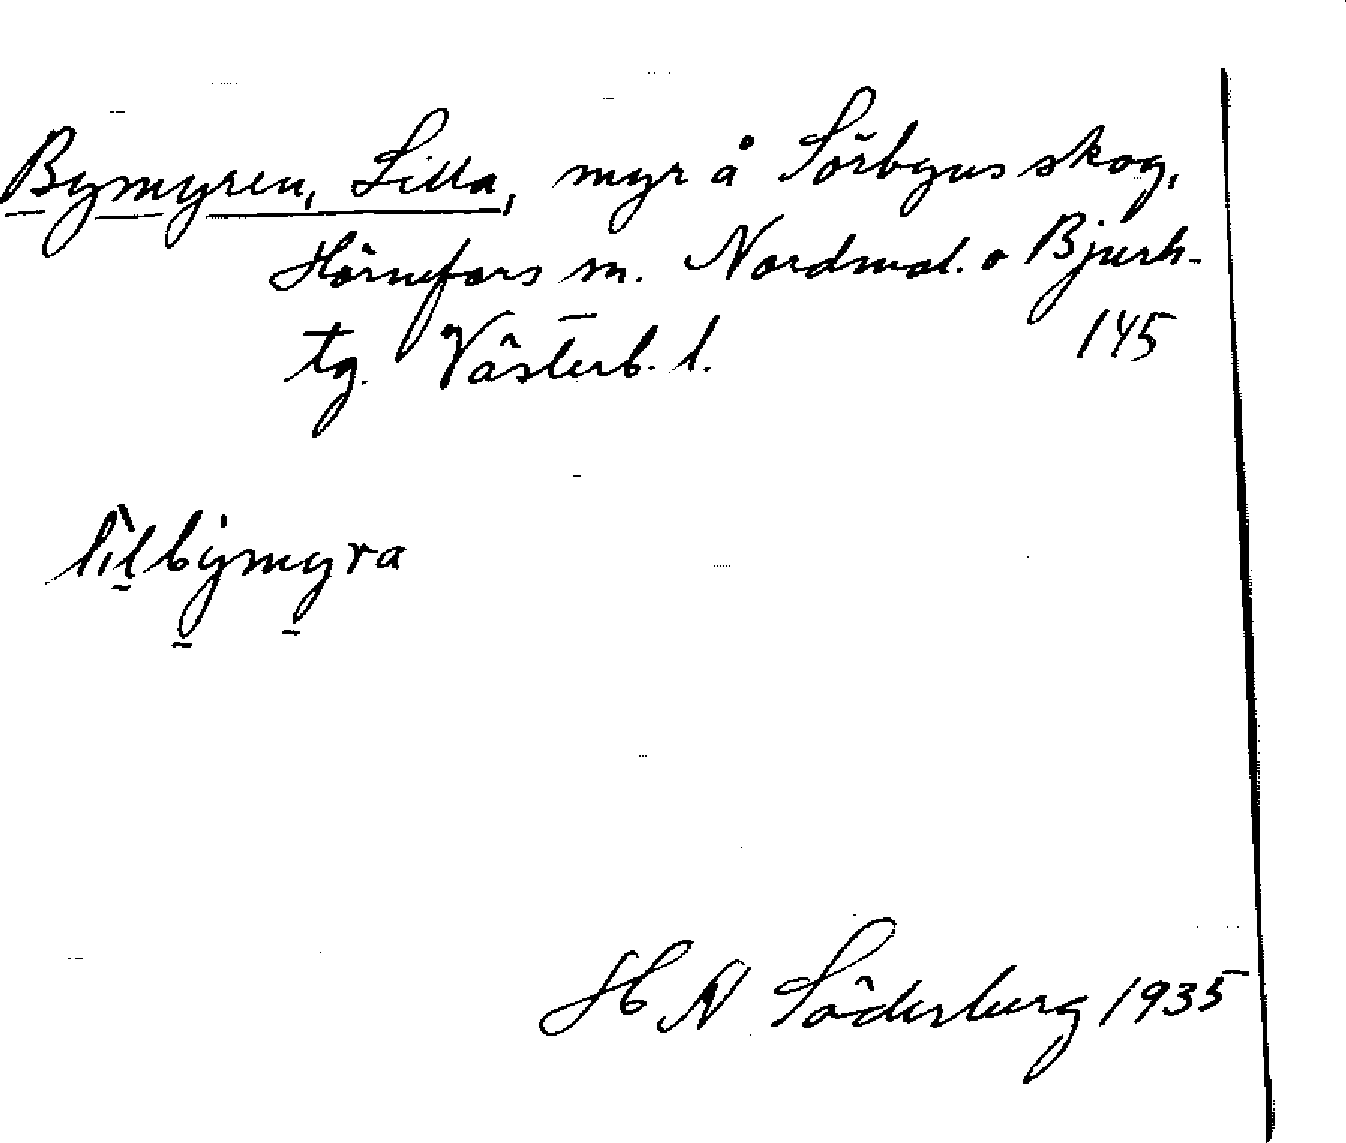 Bymyren, Lilla, myr å Sörbyns skog,
Hörnefors sn. Nordmal. o Bjurh-
tg. Västerb. l. 145
lìlbýmyra
H N Söderberg 1935